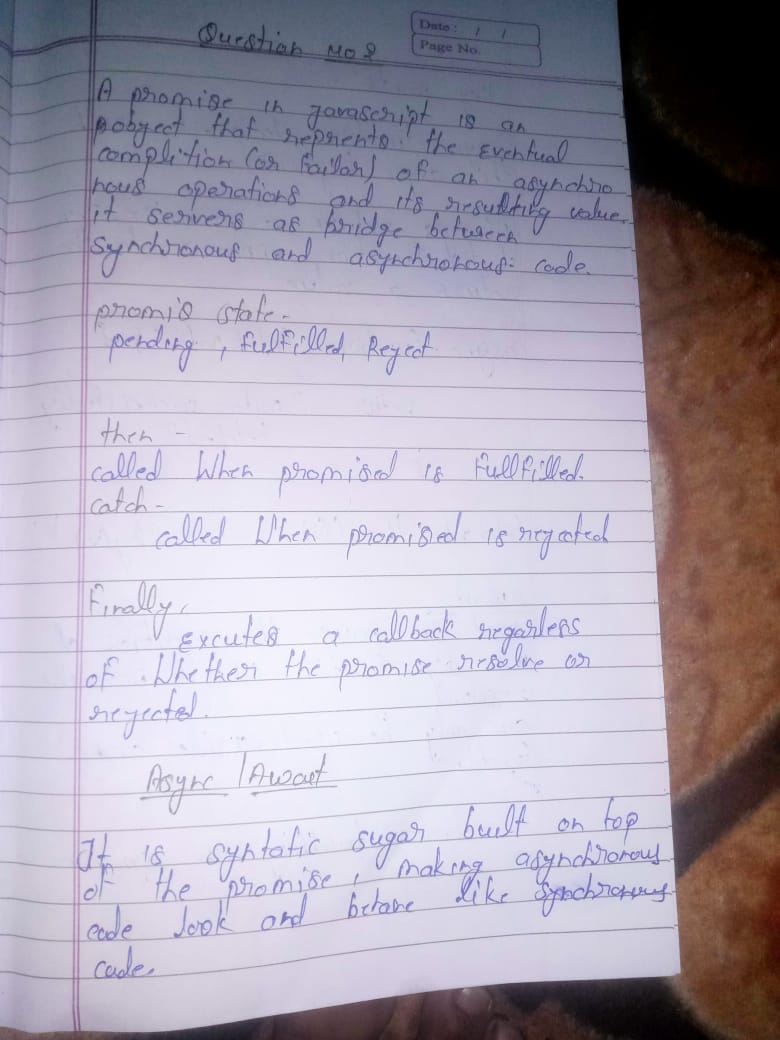 Question no 2
Date : / /
Page No.
A promise in javascript is an
object that reprents the eventual
complition (or failor) of an asynchro
nous operations and its resulting value.
it servers as bridge between
synchronous and asynchronous code.
promis state -
pending, fulfilled, Reject
then -
called When promised is fullfilled.
catch -
called When promised is rejected
Finally,
Excutes a callback regarless
of Whether the promise resolve or
rejected.
Async / Awaet
It is syntatic sugar built on top
of the promise, making asynchronous
code look and behave like synchronous
code.